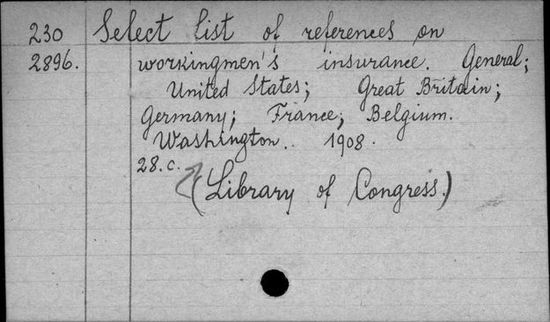 230 Select list of references on
2896. workingmen's insurance. General;
United States; Great Britain;
Germany; France; Belgium.
Washington.. 1908.
28.c.
(Library of Congress.)